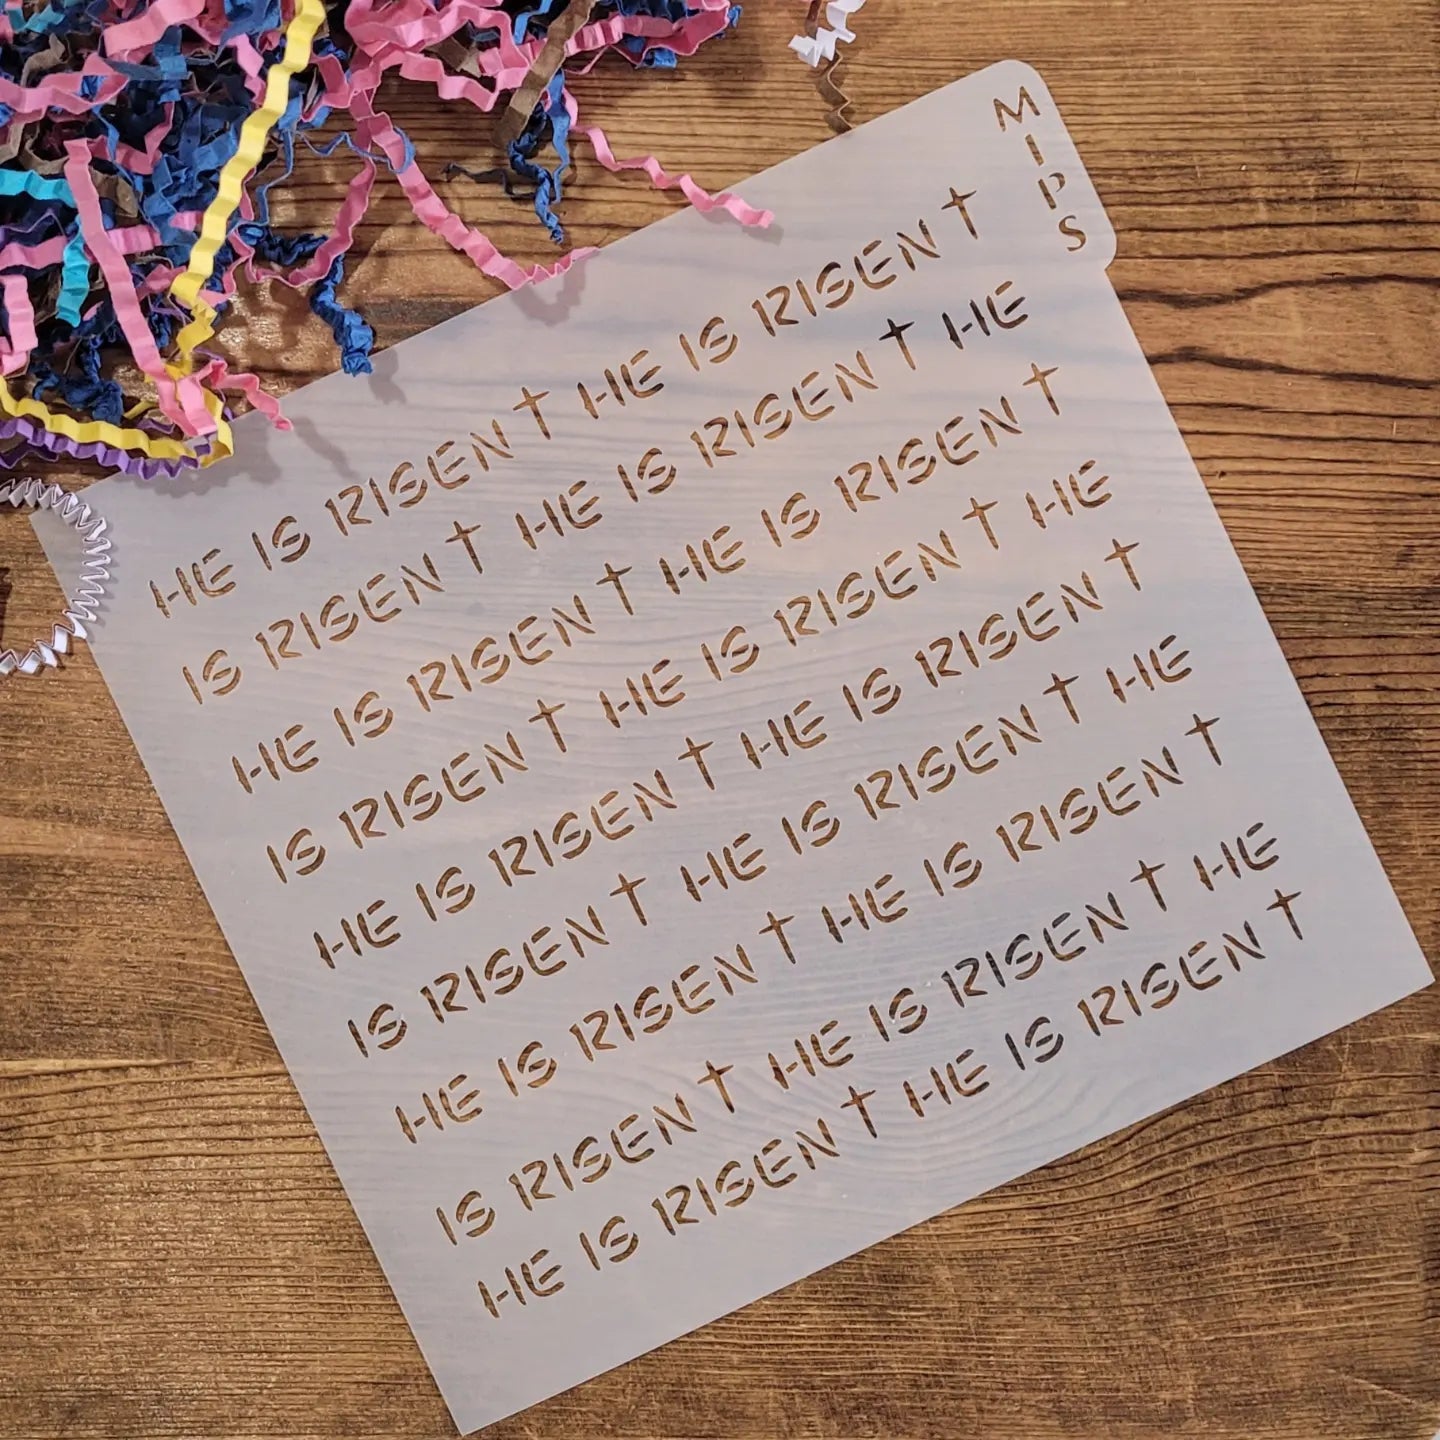 MIPS
HE IS RISEN † HE IS RISEN †
IS RISEN † HE IS RISEN † HE
HE IS RISEN † HE IS RISEN †
IS RISEN † HE IS RISEN † HE
HE IS RISEN † HE IS RISEN †
IS RISEN † HE IS RISEN † HE
HE IS RISEN † HE IS RISEN †
IS RISEN † HE IS RISEN † HE
HE IS RISEN † HE IS RISEN †